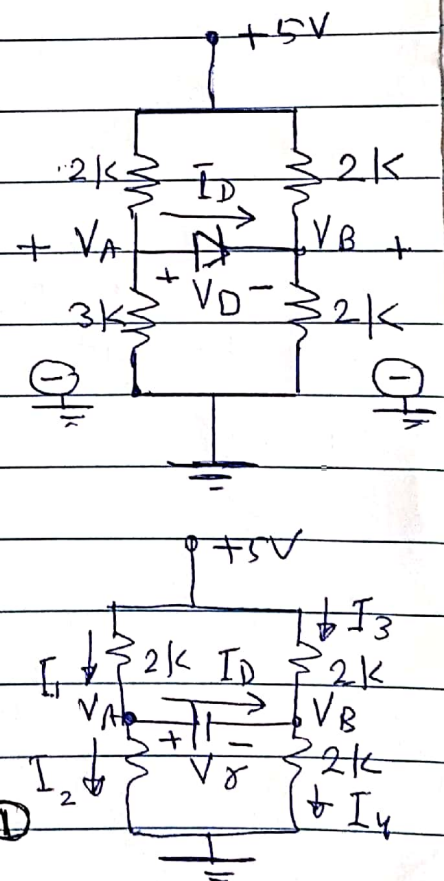 +5V
2K I_D 2K
+ V_A V_B +
+ V_D -
3K 2K
- -
+5V
I_3
I_1 2K I_D 2K
V_A V_B
+ -
I_2 V_γ 2K
I_4
1